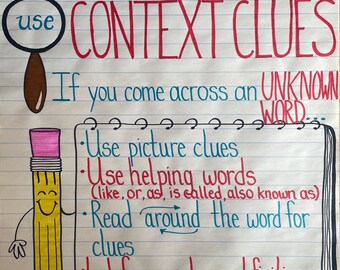 use CONTEXT CLUES
If you come across an UNKNOWN
WORD...
· Use picture clues
· Use helping words
(like, or, as, is called, also known as)
· Read around the word for
clues